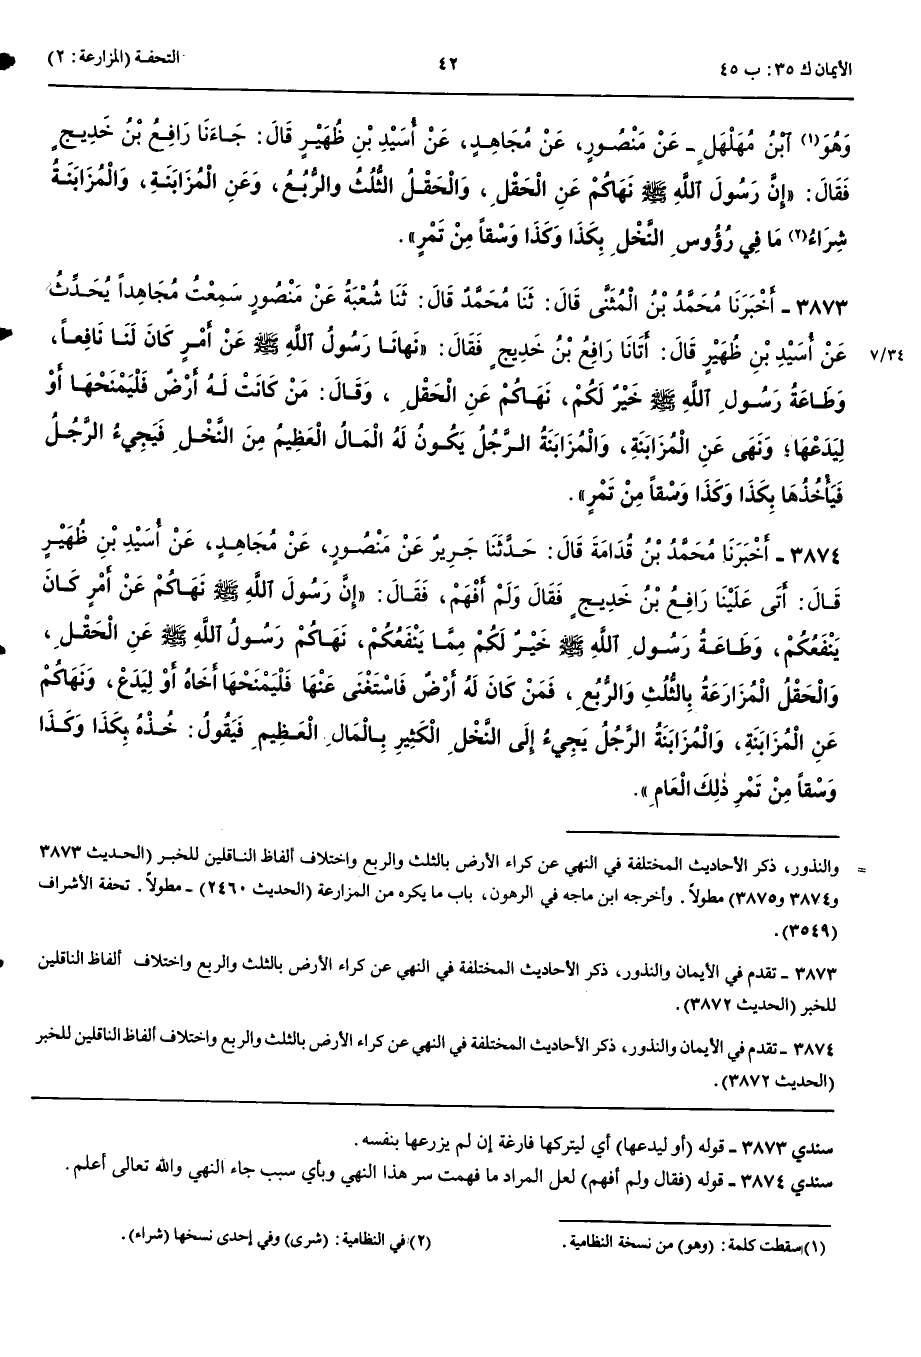 الأيمان ك ٣٥: ب ٤٥ ٤٢ التحفة (المزارعة: ٢)
وَهُوَ(١) ٱبْنُ مُهَلْهَلٍ - عَنْ مَنْصُورٍ، عَنْ مُجَاهِدٍ، عَنْ أُسَيْدِ بْنِ ظُهَيْرٍ قَالَ: جَاءَنَا رَافِعُ بْنُ خَدِيجٍ
فَقَالَ: «إِنَّ رَسُولَ ٱللَّهِ ﷺ نَهَاكُمْ عَنِ الْحَقْلِ، وَالْحَقْلُ الثُّلُثُ وَالرُّبُعُ، وَعَنِ الْمُزَابَنَةِ، وَالْمُزَابَنَةُ
شِرَاءُ(٢) مَا فِي رُؤُوسِ النَّخْلِ بِكَذَا وَكَذَا وَسْقاً مِنْ تَمْرٍ».
٣٨٧٣ - أَخْبَرَنَا مُحَمَّدُ بْنُ الْمُثَنَّى قَالَ: ثَنَا مُحَمَّدٌ قَالَ: ثَنَا شُعْبَةُ عَنْ مَنْصُورٍ سَمِعْتُ مُجَاهِداً يُحَدِّثُ
٧/٣٤ عَنْ أُسَيْدِ بْنِ ظُهَيْرٍ قَالَ: أَتَانَا رَافِعُ بْنُ خَدِيجٍ فَقَالَ: «نَهانَا رَسُولُ ٱللَّهِ ﷺ عَنْ أَمْرٍ كَانَ لَنَا نَافِعاً،
وَطَاعَةُ رَسُولِ ٱللَّهِ ﷺ خَيْرٌ لَكُمْ، نَهَاكُمْ عَنِ الْحَقْلِ، وَقَالَ: مَنْ كَانَتْ لَهُ أَرْضٌ فَلْيَمْنَحْهَا أَوْ
لِيَدَعْهَا؛ وَنَهَى عَنِ الْمُزَابَنَةِ، وَالْمُزَابَنَةُ الرَّجُلُ يَكُونُ لَهُ الْمَالُ الْعَظِيمُ مِنَ النَّخْلِ فَيَجِيءُ الرَّجُلُ
فَيَأْخُذُهَا بِكَذَا وَكَذَا وَسْقاً مِنْ تَمْرٍ».
٣٨٧٤ - أَخْبَرَنَا مُحَمَّدُ بْنُ قُدَامَةَ قَالَ: حَدَّثَنَا جَرِيرٌ عَنْ مَنْصُورٍ، عَنْ مُجَاهِدٍ، عَنْ أُسَيْدِ بْنِ ظُهَيْرٍ
قَالَ: أَتَى عَلَيْنَا رَافِعُ بْنُ خَدِيجٍ فَقَالَ وَلَمْ أَفْهَمْ، فَقَالَ: «إِنَّ رَسُولَ ٱللَّهِ ﷺ نَهَاكُمْ عَنْ أَمْرٍ كَانَ
يَنْفَعُكُمْ، وَطَاعَةُ رَسُولِ ٱللَّهِ ﷺ خَيْرٌ لَكُمْ مِمَّا يَنْفَعُكُمْ، نَهَاكُمْ رَسُولُ اللَّهِ ﷺ عَنِ الْحَقْلِ،
وَالْحَقْلُ الْمُزَارَعَةُ بِالثُّلُثِ وَالرُّبُعِ، فَمَنْ كَانَ لَهُ أَرْضٌ فَاسْتَغْنَى عَنْهَا فَلْيَمْنَحْهَا أَخَاهُ أَوْ لِيَدَعْ، وَنَهَاكُمْ
عَنِ الْمُزَابَنَةِ، وَالْمُزَابَنَةُ الرَّجُلُ يَجِيءُ إِلَى النَّخْلِ الْكَثِيرِ بِالْمَالِ الْعَظِيمِ فَيَقُولُ: خُذْهُ بِكَذَا وَكَذَا
وَسْقاً مِنْ تَمْرِ ذٰلِكَ الْعَامِ».
= والنذور، ذكر الأحاديث المختلفة في النهي عن كراء الأرض بالثلث والربع واختلاف ألفاظ الناقلين للخبر (الحديث ٣٨٧٣
و٣٨٧٤ و٣٨٧٥) مطولاً. وأخرجه ابن ماجه في الرهون، باب ما يكره من المزارعة (الحديث ٢٤٦٠) - مطولاً. تحفة الأشراف
(٣٥٤٩).
٣٨٧٣ - تقدم في الأيمان والنذور، ذكر الأحاديث المختلفة في النهي عن كراء الأرض بالثلث والربع واختلاف ألفاظ الناقلين
للخبر (الحديث ٣٨٧٢).
٣٨٧٤ - تقدم في الأيمان والنذور، ذكر الأحاديث المختلفة في النهي عن كراء الأرض بالثلث والربع واختلاف ألفاظ الناقلين للخبر
(الحديث ٣٨٧٢).
سندي ٣٨٧٣ - قوله (أو ليدعها) أي ليتركها فارغة إن لم يزرعها بنفسه.
سندي ٣٨٧٤ - قوله (فقال ولم أفهم) لعل المراد ما فهمت سر هذا النهي وبأي سبب جاء النهي والله تعالى أعلم.
(١) سقطت كلمة: (وهو) من نسخة النظامية. (٢) في النظامية: (شرى) وفي إحدى نسخها (شراء).